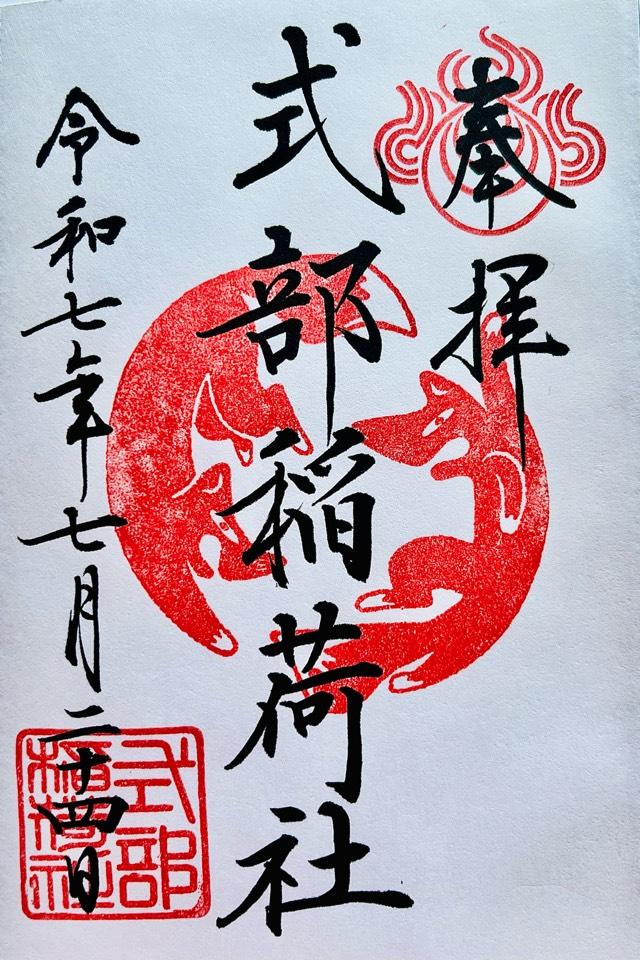 奉拝
式部稲荷社
令和七年七月二十四日
式部
稲荷社